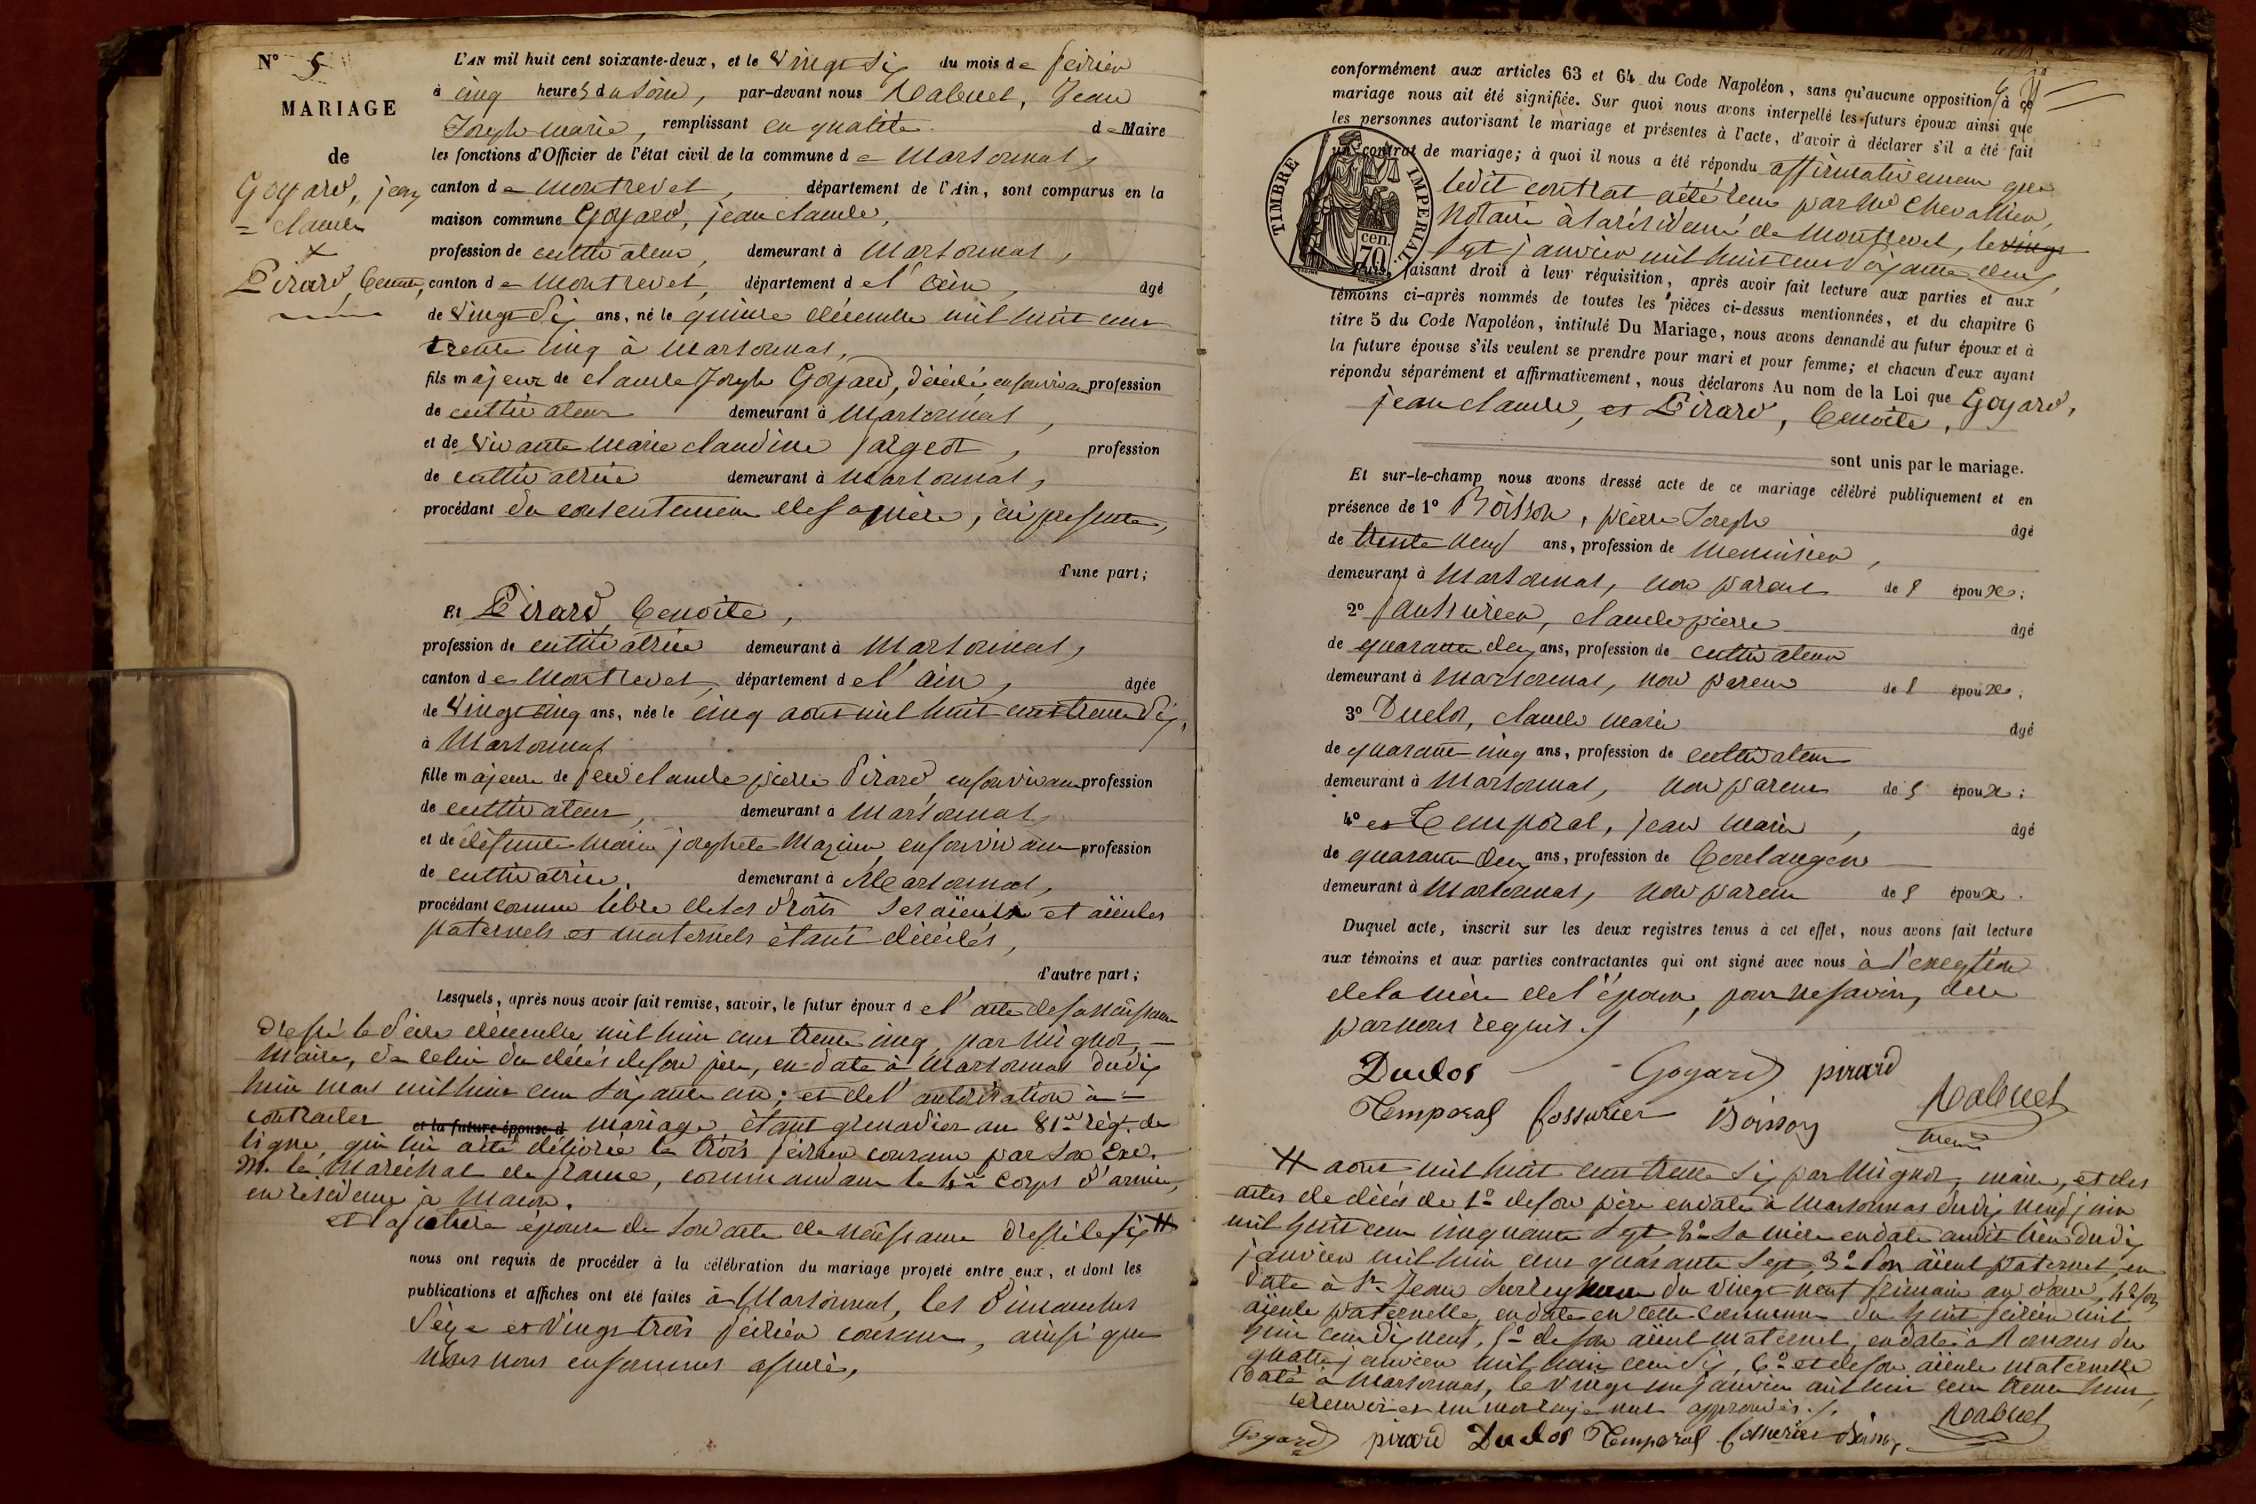 N° 5
MARIAGE
de
Goyard, jean
= claude
&
Pirard, benoite,
L'AN mil huit cent soixante-deux, et le vingt six du mois de février
à cinq heures du soir, par-devant nous Rabuel, Jean
Joseph marie, remplissant en qualité de Maire
les fonctions d'Officier de l'état civil de la commune de Marsonnas,
canton de Montrevel, département de l'Ain, sont comparus en la
maison commune Goyard, jean claude,
profession de cultivateur, demeurant à Marsonnas,
canton de Montrevel, département de l'ain, âgé
de vingt six ans, né le quinze décembre mil huit cent
trente cinq à Marsonnas,
fils majeur de claude Joseph Goyard, décédé, en son vivant profession
de cultivateur demeurant à Marsonnas,
et de vivante Marie claudine fargeot, profession
de cultivatrice demeurant à Marsonnas,
procédant du consentement de sa mère, ici présente,
d'une part;
Et Pirard, benoite,
profession de cultivatrice demeurant à Marsonnas,
canton de Montrevel, département de l'ain, âgée
de vingt cinq ans, née le cinq aout mil huit cent trente six,
à Marsonnas
fille majeure de feu claude pierre Pirard, en son vivant profession
de cultivateur, demeurant à Marsonnas,
et de défunte Marie josephete Mazuir, en son vivant profession
de cultivatrice, demeurant à Marsonnas,
procédant comme libre de ses droits ses aïeuls et aïeules
paternels et maternels étant décédés,
d'autre part;
Lesquels, après nous avoir fait remise, savoir, le futur époux de l'acte de sa naissance
dressé le seize décembre mil huit cent trente cinq, par Mignot,
Maire, de celui du décès de son père, en date à Marsonnas du dix
huit mars mil huit cent soixante un; et de l'autorisation à
contracter et la future épouse d mariage étant grenadier au 81me régt. de
ligne, qui lui a été délivrée le trois février courant par Son Exc.
M. le Maréchal de france, commandant le 4me Corps d'armée,
en résidence à Macon.
et la future épouse de son acte de naissance dressé le six #
nous ont requis de procéder à la célébration du mariage projeté entre eux, et dont les
publications et affiches ont été faites à Marsonnas, les dimanches
seize et vingt trois février courant, ainsi que
nous nous en sommes assuré,
conformément aux articles 63 et 64 du Code Napoléon, sans qu'aucune opposition à ce
mariage nous ait été signifiée. Sur quoi nous avons interpellé les futurs époux ainsi que
les personnes autorisant le mariage et présentes à l'acte, d'avoir à déclarer s'il a été fait
un contrat de mariage; à quoi il nous a été répondu affirmativement que
ledit contrat a été reçu par Me Chevallier,
Notaire à la résidence de Montrevel, le vingt
sept janvier mil huit cent soixante deux,
TIMBRE IMPERIAL
70 cen.
Puis, faisant droit à leur réquisition, après avoir fait lecture aux parties et aux
témoins ci-après nommés de toutes les pièces ci-dessus mentionnées, et du chapitre 6
titre 5 du Code Napoléon, intitulé Du Mariage, nous avons demandé au futur époux et à
la future épouse s'ils veulent se prendre pour mari et pour femme; et chacun d'eux ayant
répondu séparément et affirmativement, nous déclarons Au nom de la Loi que Goyard,
jean claude, et Pirard, benoite,
sont unis par le mariage.
Et sur-le-champ nous avons dressé acte de ce mariage célébré publiquement et en
présence de 1° Boisson, pierre Joseph âgé
de trente neuf ans, profession de Menuisier,
demeurant à Marsonnas, non parent des époux;
2° claude pierre âgé
de quarante deux ans, profession de cultivateur
demeurant à Marsonnas, non parent des époux;
3° Duclos, claude marie âgé
de quarante cinq ans, profession de cultivateur
demeurant à Marsonnas, non parent des époux;
4° et Temporal, jean marie, âgé
de quarante deux ans, profession de boulanger
demeurant à Marsonnas, non parent des époux.
Duquel acte, inscrit sur les deux registres tenus à cet effet, nous avons fait lecture
aux témoins et aux parties contractantes qui ont signé avec nous à l'exception
de la mère de l'époux, pour ne savoir, de ce
par nous requis.
Duclos Goyard pirard
Temporal fossurier Boisson Rabuel
# aout mil huit cent trente six par Mignot, maire, et des
actes de décès de 1° de son père en date à Marsonnas du dix neuf juin
mil huit cent cinquante sept 2° sa mère en date audit lieu du dix
janvier mil huit cent quarante sept, 3° son aïeul paternel, en
date à St Jean sur Reyssouze du vingt neuf frimaire an douze, 4° son
aïeule paternelle, en date en cette commune du huit février mil
huit cent dix neuf, 5° de son aïeul maternel, en date à Romans du
quatre janvier mil huit cent dix, 6° et de son aïeule maternelle
date à Marsonnas, le vingt un janvier mil huit cent trente huit,
le renvoi et un mot rayé nul approuvés.
Rabuel
Goyard pirard Duclos Temporal fossurier Boisson